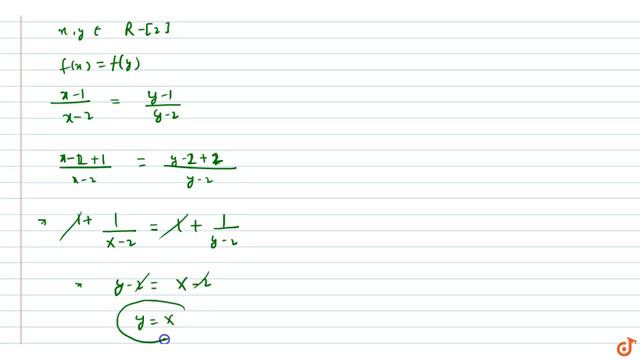 x, y ∈ R-[2]
f(x) = f(y)
x-1/x-2 = y-1/y-2
x-2+1/x-2 = y-2+2/y-2
⇒ 1+ 1/x-2 = 1 + 1/y-2
y-2 = x-2
y = x